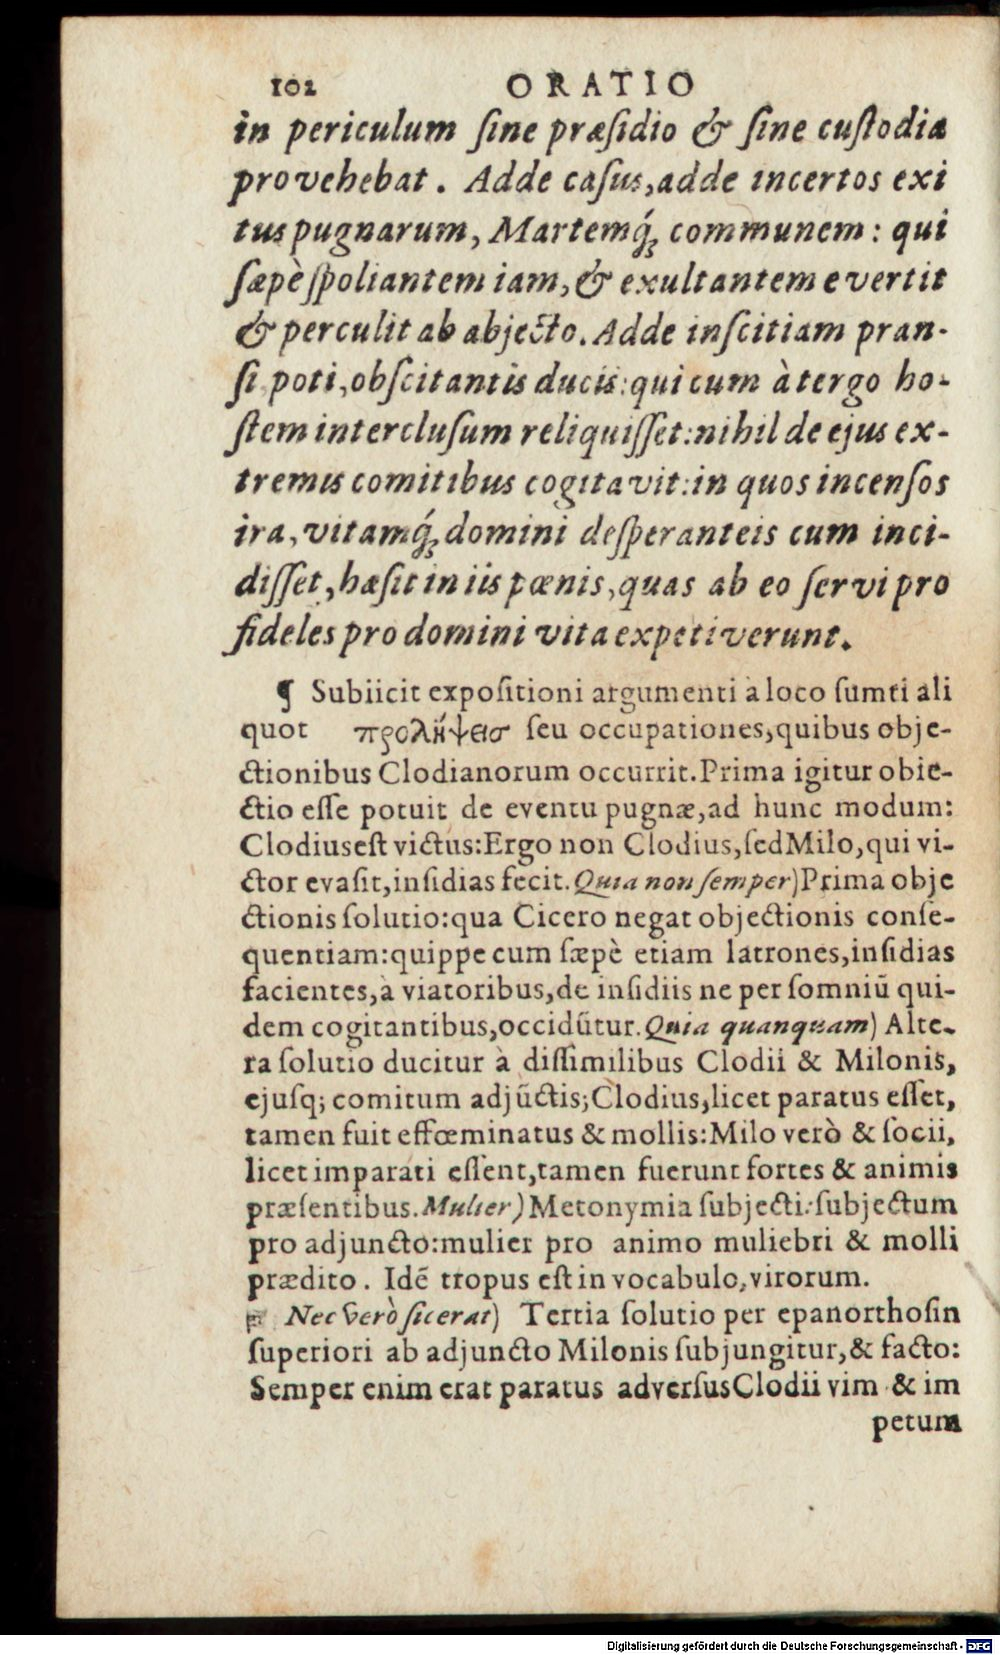 102 ORATIO
in periculum ſine præſidio & ſine cuſtodia
provehebat. Adde caſus, adde incertos exi
tus pugnarum, Martemq́; communem: qui
ſæpè ſpoliantem iam, & exultantem evertit
& perculit ab abjecto. Adde inſcitiam pran-
ſi poti, obſcitantis ducis: qui cum à tergo ho-
ſtem intercluſum reliquiſſet: nihil de ejus ex-
tremis comitibus cogitavit: in quos incenſos
ira, vitamq́; domini deſperanteis cum inci-
diſſet, hæſit in iis pœnis, quas ab eo ſervi pro
fideles pro domini vita expetiverunt.
¶ Subiicit expoſitioni argumenti à loco ſumti ali
quot προλήψεισ ſeu occupationes, quibus obje-
ctionibus Clodianorum occurrit. Prima igitur obie-
ctio eſſe potuit de eventu pugnæ, ad hunc modum:
Clodius eſt victus: Ergo non Clodius, ſed Milo, qui vi-
ctor evaſit, inſidias fecit. Quia non ſemper) Prima obje
ctionis ſolutio: qua Cicero negat objectionis conſe-
quentiam: quippe cum ſæpè etiam latrones, inſidias
facientes, à viatoribus, de inſidiis ne per ſomniũ qui-
dem cogitantibus, occidũtur. Quia quanquam) Alte-
ra ſolutio ducitur à diſſimilibus Clodii & Milonis,
ejuſq; comitum adjũctis; Clodius, licet paratus eſſet,
tamen fuit effœminatus & mollis: Milo verò & ſocii,
licet imparati eſſent, tamen fuerunt fortes & animis
præſentibus. Mulier) Metonymia ſubjecti: ſubjectum
pro adjuncto: mulier pro animo muliebri & molli
prædito. Idẽ tropus eſt in vocabulo, virorum.
☞ Nec verò ſic erat) Tertia ſolutio per epanorthoſin
ſuperiori ab adjuncto Milonis ſubjungitur, & facto:
Semper enim erat paratus adverſus Clodii vim & im
petum
Digitalisierung gefördert durch die Deutsche Forschungsgemeinschaft - DFG